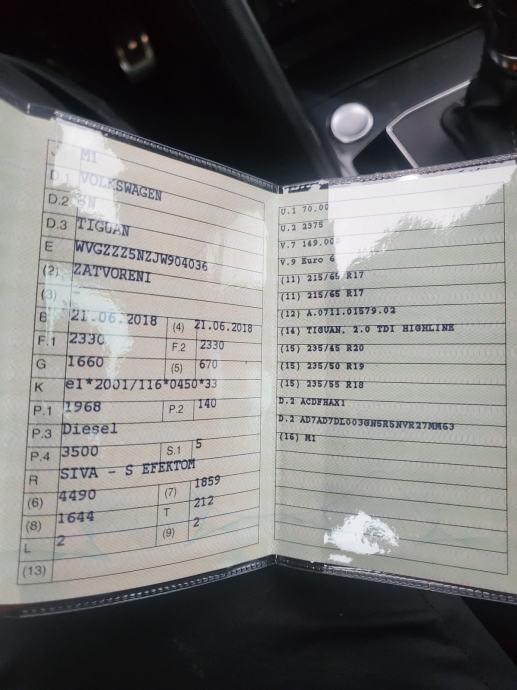 J M1
D.1 VOLKSWAGEN
D.2 5N
D.3 TIGUAN
E WVGZZZ5NZJW904036
(2) ZATVORENI
(3) -
B 21.06.2018 (4) 21.06.2018
F.1 2330 F.2 2330
G 1660 (5) 670
K e1*2001/116*0450*33
P.1 1968 P.2 140
P.3 Diesel
P.4 3500 S.1 5
R SIVA - S EFEKTOM
(6) 4490 (7) 1859
(8) 1644 T 212
L 2 (9) 2
(13)
U.1 70.00
U.2 2375
V.7 149.000
V.9 Euro 6
(11) 215/65 R17
(11) 215/65 R17
(12) A.0711.01579.02
(14) TIGUAN, 2.0 TDI HIGHLINE
(15) 235/45 R20
(15) 235/50 R19
(15) 235/55 R18
D.2 ACDFHAX1
D.2 AD7AD7DL003GN5R5NVR27MM63
(16) M1